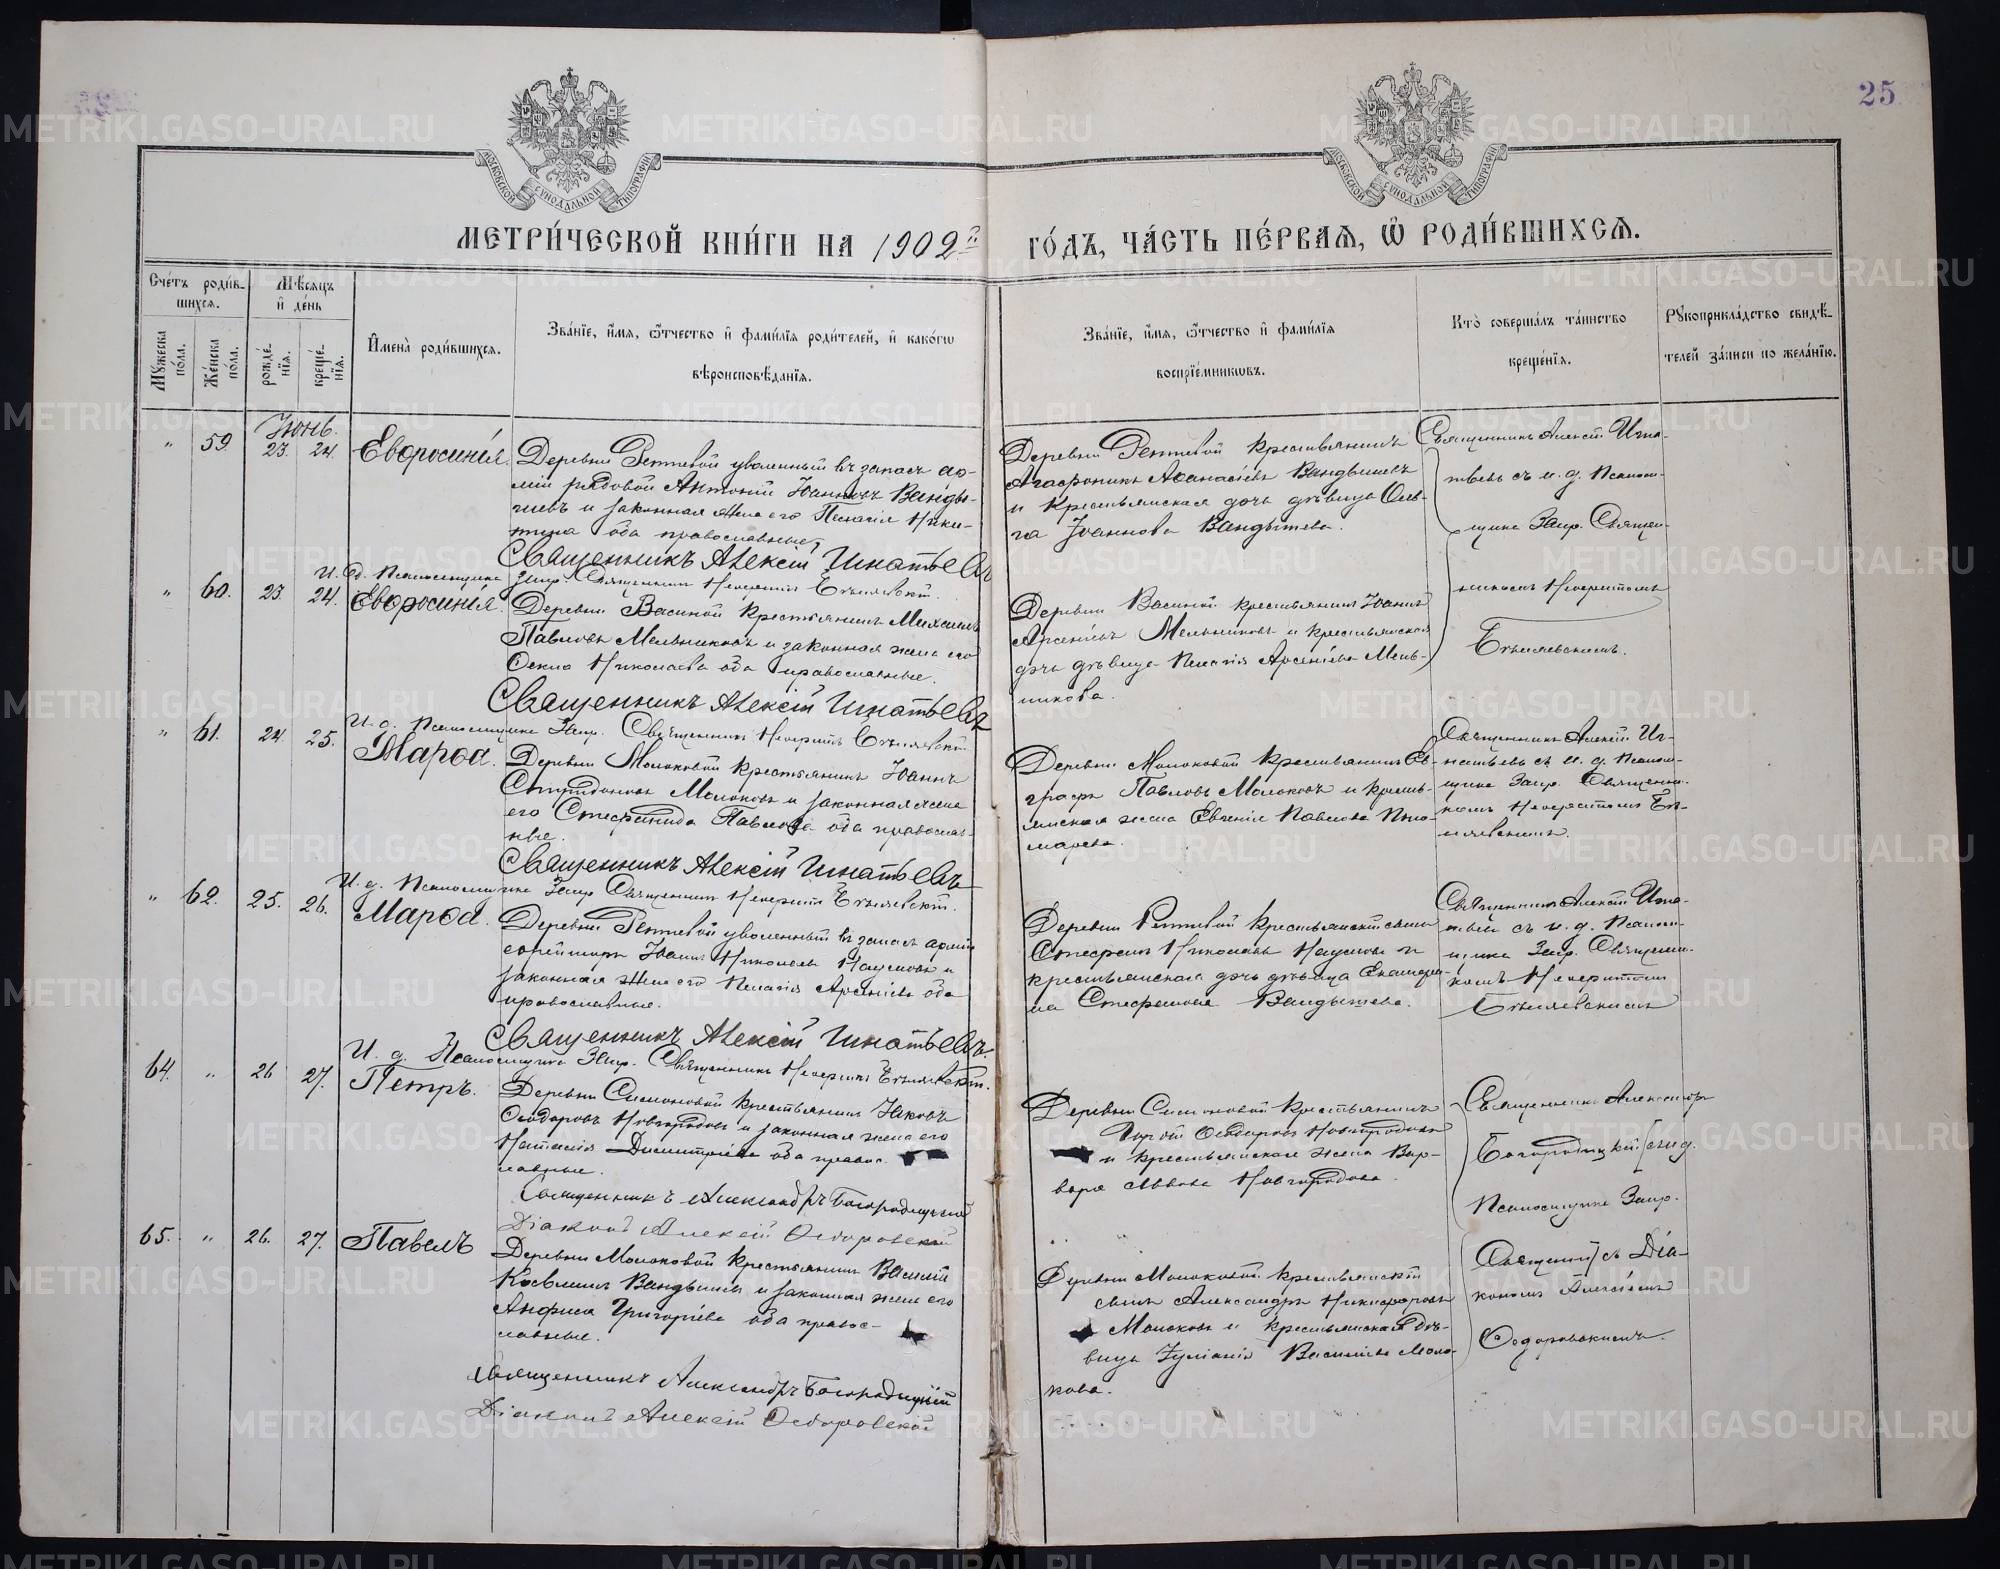 25
МОСКОВСКОЙ СѴНОДАЛЬНОЙ ТИПОГРАФІИ
МОСКОВСКОЙ СѴНОДАЛЬНОЙ ТИПОГРАФІИ
МЕТРИ́ЧЕСКОЙ КНИ́ГИ НА 1902 й ГО́ДЪ, ЧА́СТЬ ПЕ́РВАѦ, Ѡ РОДИ́ВШИХСѦ.
Сче́тъ роди́в-
шихсѧ.
Мꙋжеска по́ла.
Же́нска по́ла.
Мѣ́сѧцъ и де́нь
рожде́-нїѧ.
креще́-нїѧ.
И҆мена̀ роди́вшихсѧ.
Зва́нїе, и҆́мѧ, ѻ҆́тчество и҆ фами́лїѧ роди́телей, и҆ како́гѡ
вѣроисповѣ́данїѧ.
Зва́нїе, и҆́мѧ, ѻ҆́тчество и҆ фами́лїѧ
воспрїе́мникѡвъ.
Кто̀ соверша́лъ та́инство
креще́нїѧ.
Рꙋкоприкла́дство свидѣ́-
телей за́писи по жела́нїю.
Іюнь.
" 59. 23. 24. Евфросинія.
Деревни Реттевой уволенный въ запасъ ар-
міи рядовой Антоній Іоанновъ Ванды-
шевъ и законная жена его Пелагія Ники-
тина оба православные,
Священникъ Алексій Игнатьевъ
И. д. Псаломщика Запр. Священник Неофитъ Бѣляевскій.
Деревни Реттевой крестьянинъ
Агафоникъ Аѳанасіевъ Вандышевъ
и крестьянская дочь дѣвица Оль-
га Іоаннова Вандышева.
Священникъ Алексій Игна-
тьевъ съ и. д. Псалом-
щика Запр. Священ-
никомъ Неофитомъ
Бѣляевскимъ.
" 60. 23. 24. Евфросинія.
Деревни Васиной крестьянинъ Михаилъ
Павловъ Мельниковъ и законная жена его
Николаева оба православные.
Священникъ Алексій Игнатьевъ
И. д. Псаломщика Запр. Священникъ Неофитъ Бѣляевскій
Деревни Васиной крестьянинъ Іоаннъ
Арсеніевъ Мельниковъ и крестьянская
дочь дѣвица Пелагія Арсеніева Мель-
никова.
" 61. 24. 25. Марѳа.
Деревни Молоковой крестьянинъ Іоаннъ
Молоковъ и законная жена
его Стефанида Павлова оба православ-
ные.
Священникъ Алексій Игнатьевъ
И. д. Псаломщика Запр. Священникъ Неофитъ Бѣляевскій.
Деревни Молоковой крестьянинъ Ев-
графъ Павловъ Молоковъ и кресть-
янская жена Евгенія Павлова Поно-
марева.
Священникъ Алексій Иг-
натьевъ съ и. д. Псалом-
щика Запр. Священни-
комъ Неофитомъ Бѣ-
ляевскимъ.
" 62. 25. 26. Марѳа.
Деревни Реттевой уволенный въ запасъ арміи
Іоаннъ Николаевъ Наумовъ и
законная жена его Пелагія Арсеніева оба
православные.
Священникъ Алексій Игнатьевъ.
И. д. Псаломщика Запр. Священникъ Неофитъ Бѣляевскій.
Деревни Реттевой крестьянскій сынъ
Стефанъ Николаевъ Наумовъ и
крестьянская дочь дѣвица Екатери-
на Стефанова Вандышева.
Священникъ Алексій Игна-
тьевъ съ и. д. Псалом-
щика Запр. Священни-
комъ Неофитомъ
Бѣляевскимъ
64. " 26 27. Петръ.
Деревни Симоновой крестьянинъ Іаковъ
Ѳеодоровъ Новгородовъ и законная жена его
Наталія Димитріева оба право-
славные.
Священникъ Александръ Богородицкій
Діаконъ Алексій Ѳедоровскій
Деревни Симоновой крестьянинъ
Ѳеодоровъ Новгородовъ
и крестьянская жена Вар-
вара Львова Новгородова.
Священникъ Александръ
Богородицкій
Псаломщика Запр.
65. " 26. 27. Павелъ
Деревни Молоковой крестьянинъ Василій
Вандышевъ и законная жена его
Анфиса Григоріева оба право-
славные.
Священникъ Александръ Богородицкій
Діаконъ Алексій Ѳедоровскій
Деревни Молоковой крестьянскій
сынъ Александръ Никифоровъ
Молоковъ и крестьянская дѣ-
вица Іуліанія Васильева Моло-
кова.
съ Діа-
кономъ Алексіемъ
Ѳедоровскимъ.
METRIKI.GASO-URAL.RU